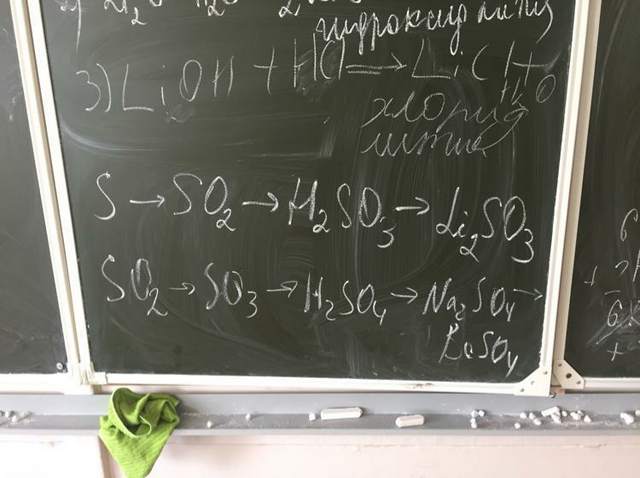 гидроксид лития
3) LiOH + HCl → LiCl + H₂O
хлорид
лития
S → SO₂ → H₂SO₃ → Li₂SO₃
SO₂ → SO₃ → H₂SO₄ → Na₂SO₄ →
BaSO₄